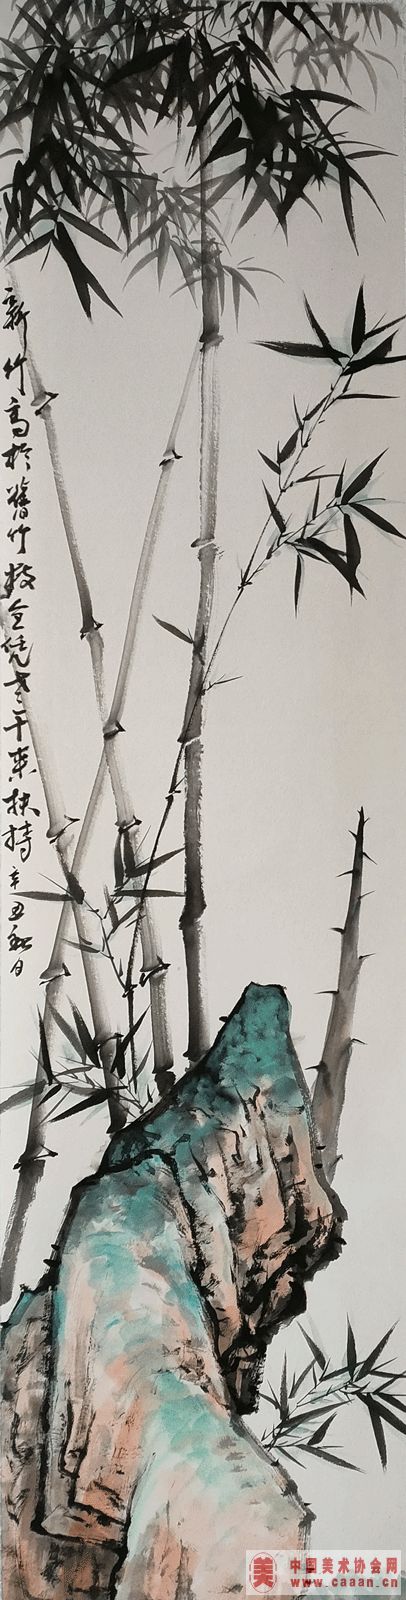 新竹高於舊竹枝全凭老干来扶持
辛丑秋日
美
中国美术协会网
www.caaan.cn